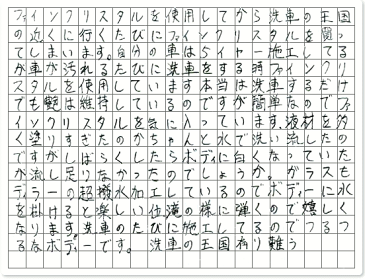 ファインクリスタルを使用してから洗車の王国
の近くに行くたびにファインクリスタルを買っ
てしまいます。自分の車は5イヤー施工してる
が車が汚れるたびに洗車をする時ファインクリ
スタルを使用しています本当は洗車するだけ
でも艶は維持しているのですが簡単なのでフ
ァインクリスタルを気に入っています。液材を多
く塗りすぎたのかちゃんと水で洗い流したの
ですがしばらくしたらボディに白くなっていた
が流し足りなかったのでしょうか。ガラスも
ディラーの超撥水加工しているのでボディーに水
を掛けると楽しい位滝の様に弾くので嬉しく
なります。洗車のたびに施工してるのでつるつ
るなボディーです。 洗車の王国有り難う